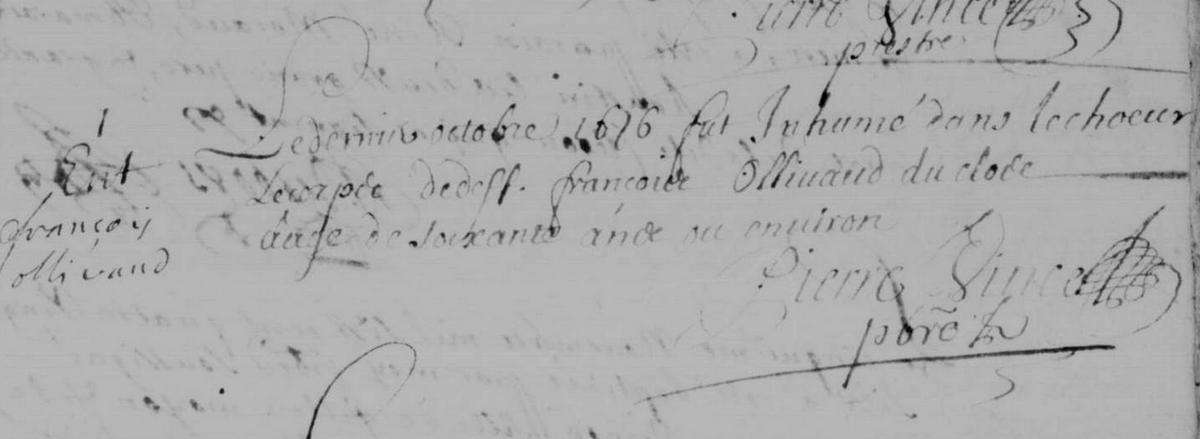 Pierre Vince
prestre.
1
Ent
françois
ollivaud
Le dernier octobre 1676 fut Inhumé dans le choeur
Le corps de deff. françois Ollivaud du clos
âagé de soixante ans ou environ
Pierre Vince
pbrē